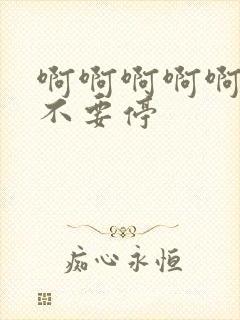 啊啊啊啊啊
不要停
痴心永恒